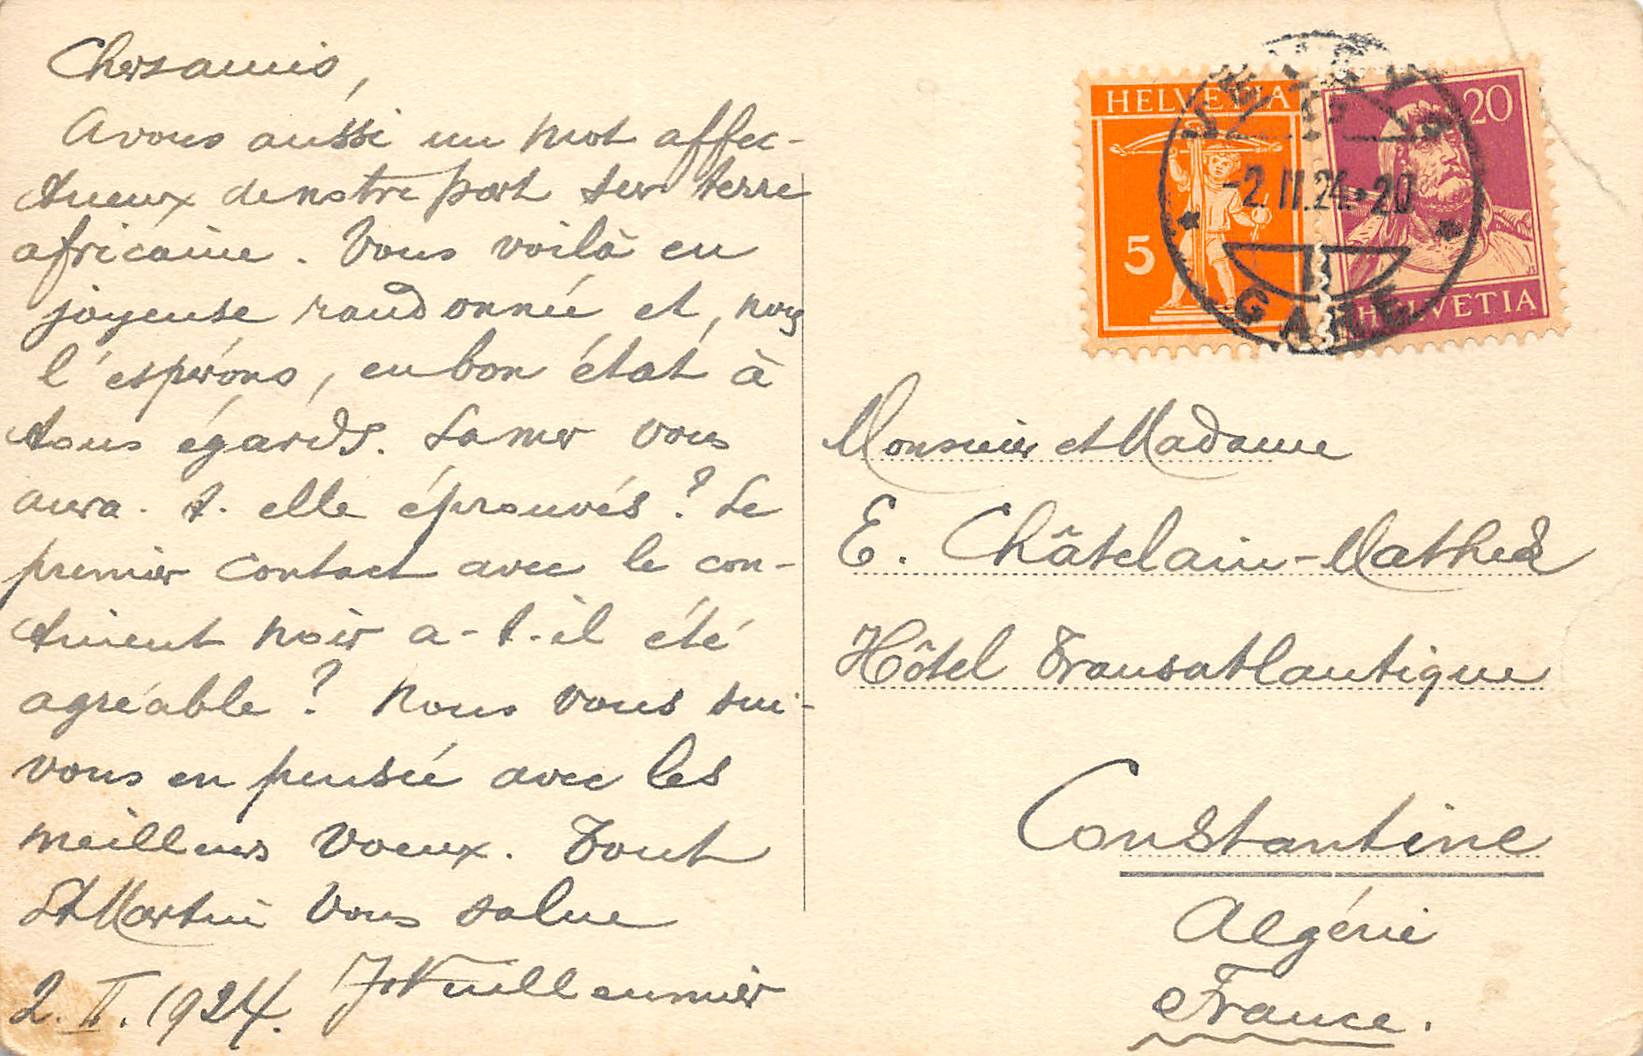 Chers amis,
A vous aussi un mot affec-
tueux de notre part sur terre
africaine. Vous voilà en
joyeuse randonnée et, nous
l'espérons, en bon état à
tous égards. La mer vous
aura-t-elle éprouvés? Le
premier contact avec le con-
tinent noir a-t-il été
agréable? Nous vous sui-
vons en pensée avec les
meilleurs voeux. Tout
St Martin vous salue
2. II. 1924. Vuilleumier
HELVETIA
5
20
HELVETIA
VEVEY
-2.II.24.-20
GARE
Monsieur et Madame
E. Châtelain-
Hôtel Transatlantique
Constantine
Algérie
France.